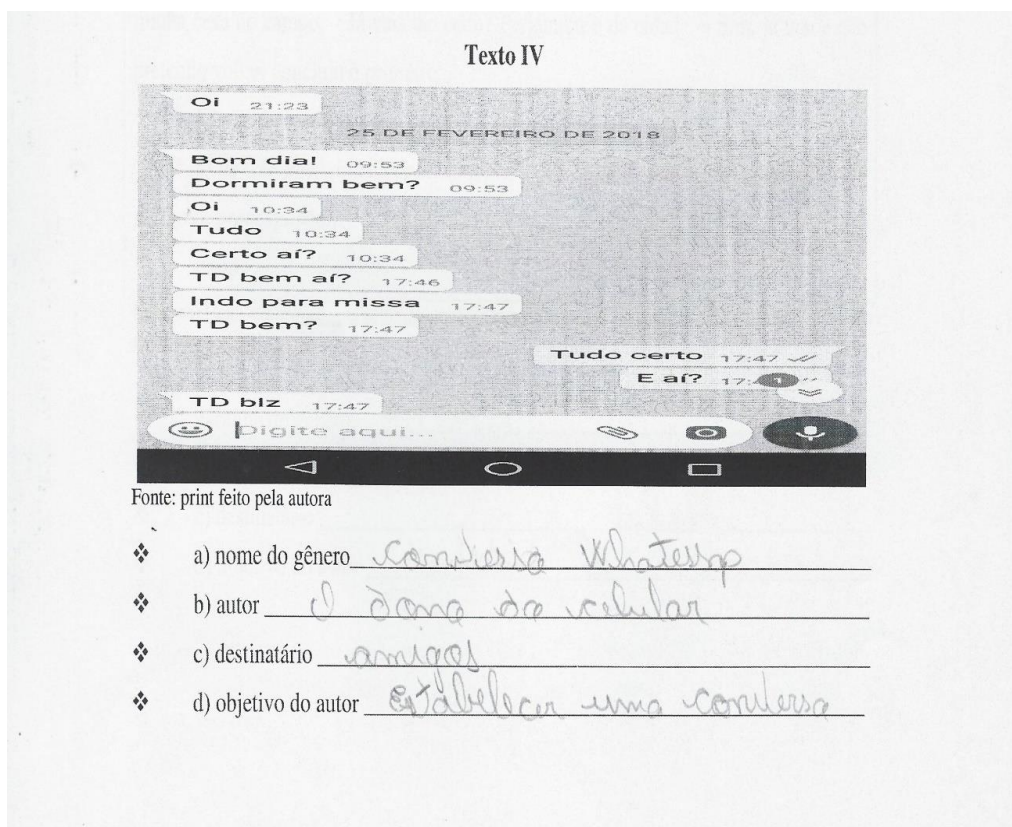 Texto IV
Oi 21:23
25 DE FEVEREIRO DE 2018
Bom dia! 09:53
Dormiram bem? 09:53
Oi 10:34
Tudo 10:34
Certo aí? 10:34
TD bem aí? 17:46
Indo para missa 17:47
TD bem? 17:47
Tudo certo 17:47
E aí? 17: 1
TD biz 17:47
Digite aqui...
Fonte: print feito pela autora
a) nome do gênero conversa
b) autor O dono do celular
c) destinatário amigos
d) objetivo do autor Estabelecer uma conversa